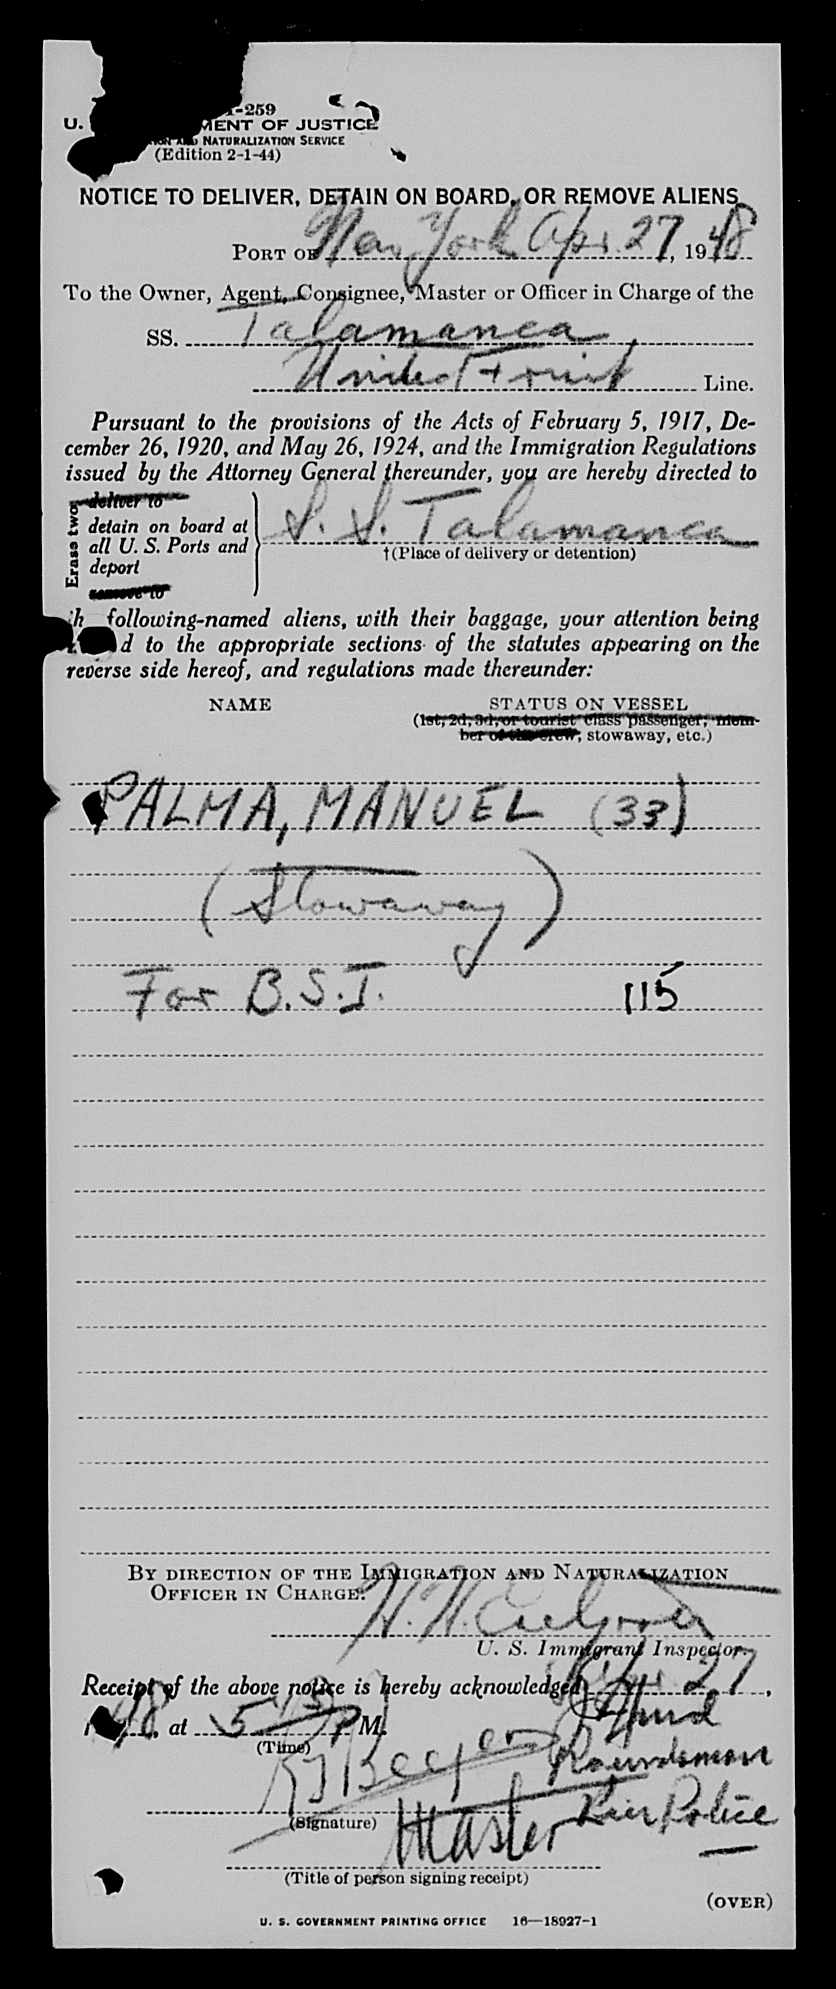 -259
U. MENT OF JUSTICE
AND NATURALIZATION SERVICE
(Edition 2-1-44)
NOTICE TO DELIVER, DETAIN ON BOARD, OR REMOVE ALIENS
PORT OF New York Apr. 27, 1948
To the Owner, Agent, Consignee, Master or Officer in Charge of the
SS. Talamanca
United Fruit Line.
Pursuant to the provisions of the Acts of February 5, 1917, De-
cember 26, 1920, and May 26, 1924, and the Immigration Regulations
issued by the Attorney General thereunder, you are hereby directed to
Erase two
deliver to
detain on board at
all U. S. Ports and
deport
remove to
S. S. Talamanca
†(Place of delivery or detention)
following-named aliens, with their baggage, your attention being
d to the appropriate sections of the statutes appearing on the
reverse side hereof, and regulations made thereunder:
NAME STATUS ON VESSEL
(1st, 2d, 3d, or tourist class passenger, mem-
ber of the crew, stowaway, etc.)
PALMA, MANUEL (33)
(Stowaway)
For B.S.I. 115
BY DIRECTION OF THE IMMIGRATION AND NATURALIZATION
OFFICER IN CHARGE:
U. S. Immigrant Inspector.
Receipt of the above notice is hereby acknowledged Apr. 27,
48, at 5 P M.
(Time)
Roundsman
(Signature)
Master Pier Police
(Title of person signing receipt)
(OVER)
U. S. GOVERNMENT PRINTING OFFICE 16—18927-1